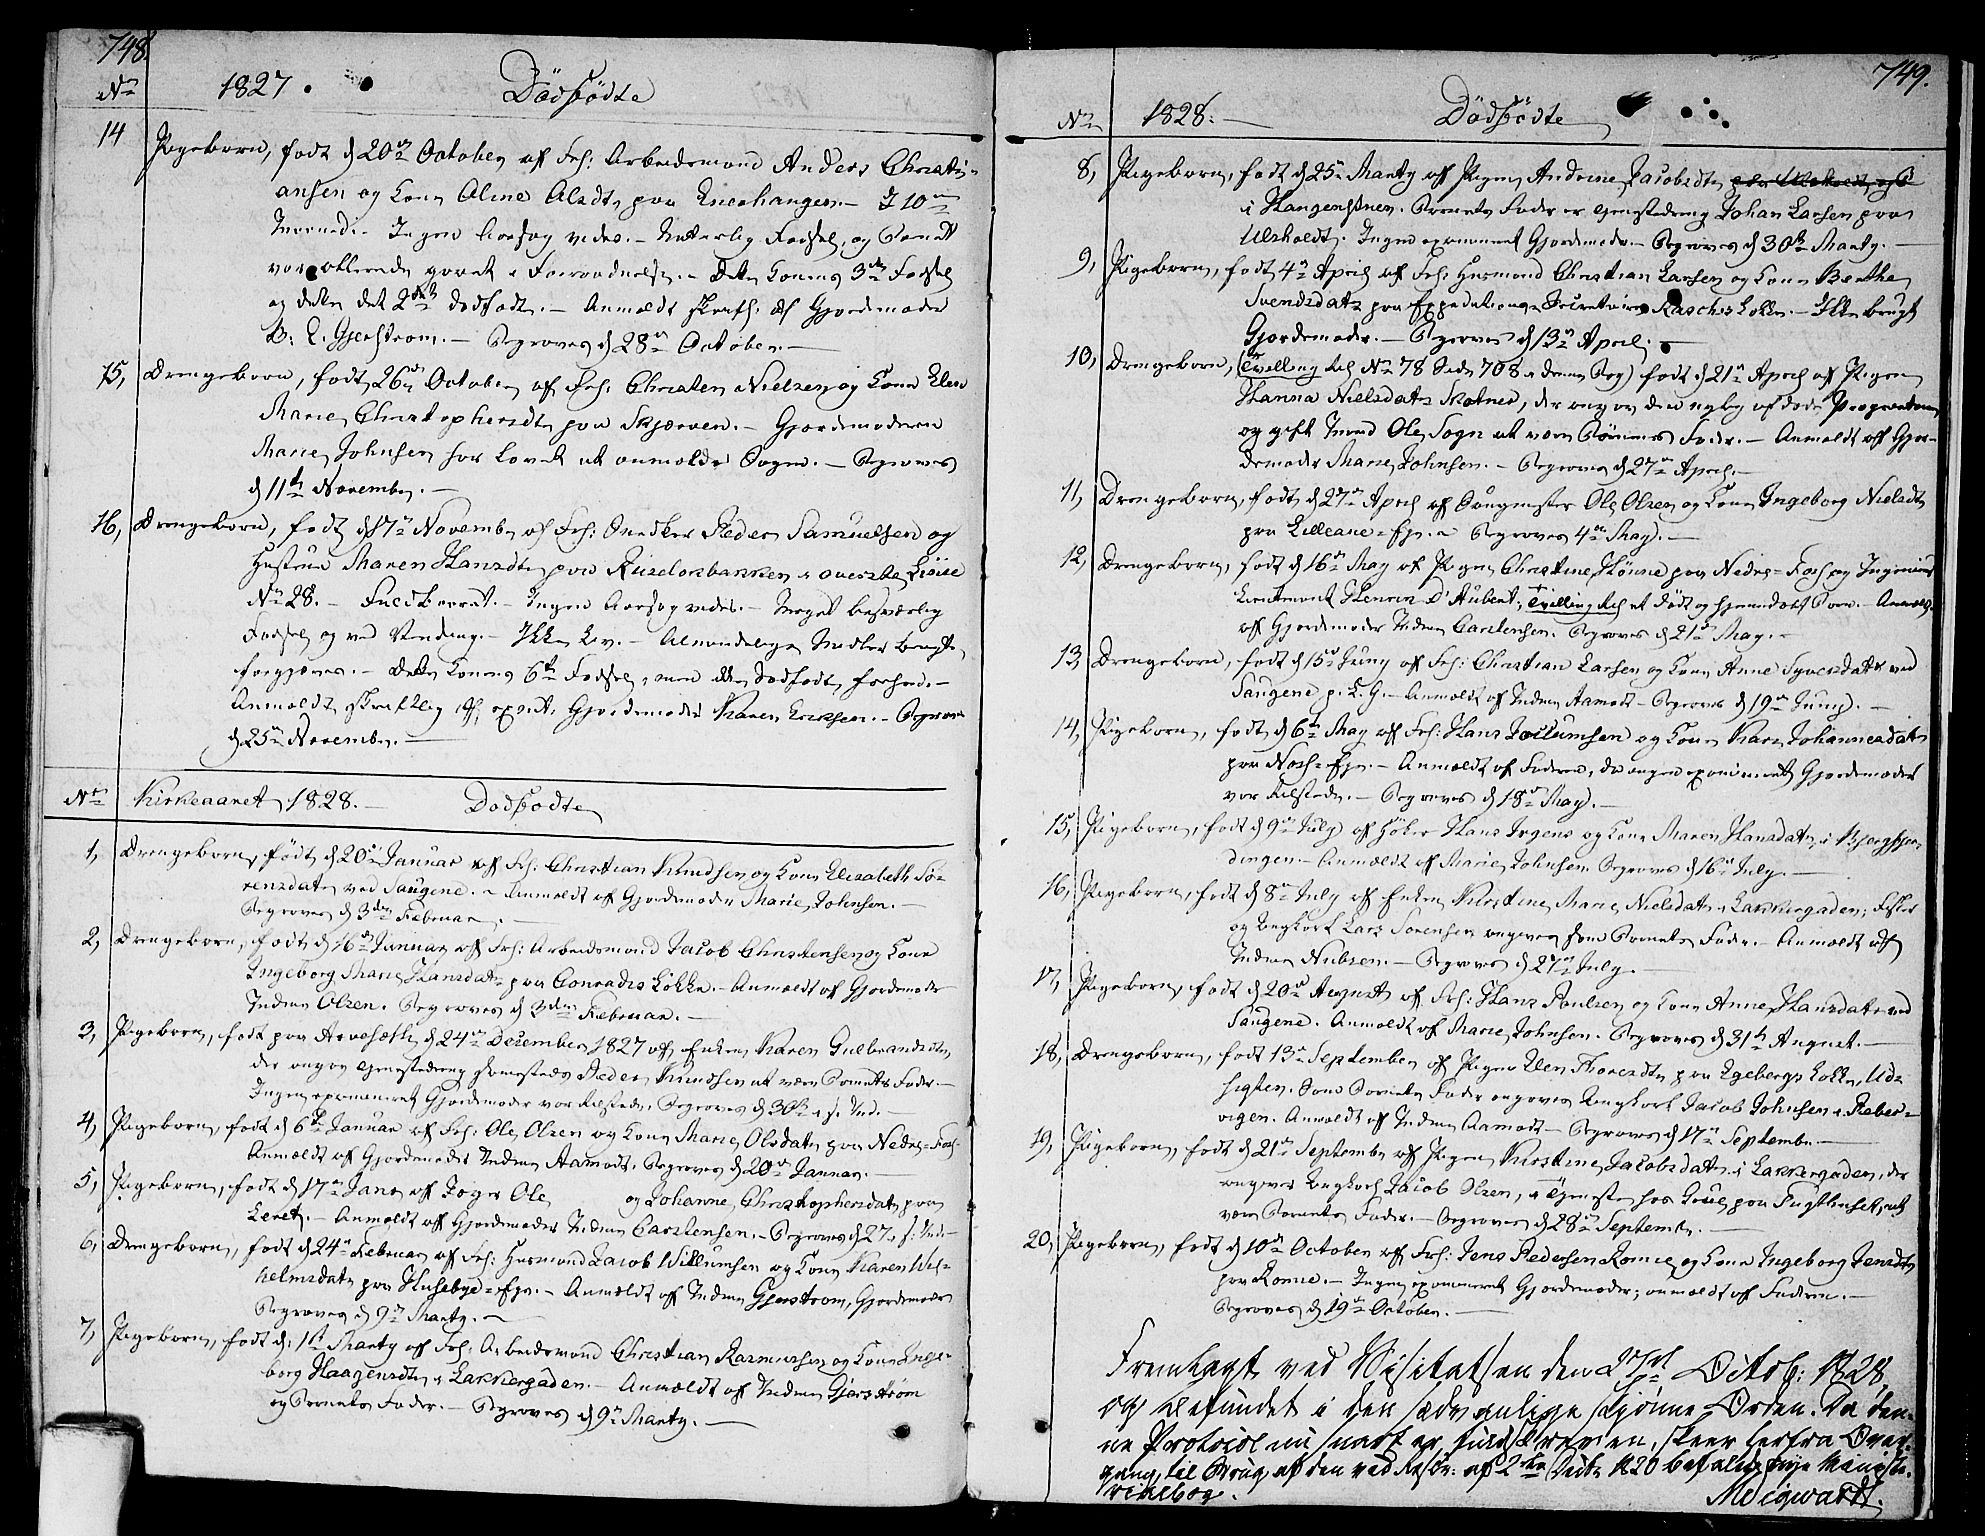 748.
No 1827. Dödfödte
14 Pigebarn, født d 20de October af Frh: Arbeidsmand Anders Christi-
ansen og Kone Aline Alsdtr paa Enerhaugen. I 10de
Maaned. Ingen Aarsag vides. Naturlig Fødsel, og Barnet
var allerede gaaet i Forraadnelse. Dette Konens 3die Fødsel
og dette det 2det dødfødte. Anmeldt skriftl: af Gjordemoder
B: E. Gjerstrøm. Begraves d 28de October.
15, Drengebarn, født 26de October af Frh: Christen Nielsen og Kone Elen
Marie Christophersdtr paa Skjærven. Gjordemoderen
Marie Johnsen har lovet at anmelde Sagen. Begraves
d 11te November.
16, Drengebarn, født d 17de Novembr af Frh: Snedker Peder Samuelsen og
Hustrue Maren Hansdtr paa Ruseløkbakken i øverste
No 28. Fuldbaaret. Ingen Aarsag vides. Meget besværlig
Fødsel og ved Vending. Ikke Liv. Almindelige Midler brugt
forgjæves. Dette Konens 6te Fødsel, men
Anmeldt skriftlig af exam: Gjordemoder Karen Eriksen. Begraves
d 25de Novembr.
No Kirkeaaret 1828. Dødfødte
1, Drengebarn, født d 20de Januar af Frh: Christian Knudsen og Kone Elisabeth Sø-
rensdatr ved Saugene. Anmeldt af Gjordemoder Marie Johnsen.
Begraves d 3die Februar.
2, Drengebarn, født d 16de Januar af Frh: Arbeidsmand Jacob Christensen og Kone
Ingeborg Marie Hansdatr paa Conradis Løkke. Anmeldt af Gjordemoder
Madme Olsen. Begraves d 3die Februar.
3, Pigebarn, født paa Arvesæth d 24de December 1827 af Enken Karen Gulbrandsdtr,
der angav Tjenestedreng sammesteds Peder Knudsen at være Barnets Fader.
Ingen examineret Gjordemoder var tilstede. Begraves d 30te s. Md.
4, Pigebarn, født d 6te Januar af Frh: Ole Olsen og Kone Marie Olsdatr paa Nedre-Fos
Anmeldt af Gjordemoder Madme Aamodt. Begraves d 20de Januar.
5, Pigebarn, født d 17de Janr af Jæger Ole og Johanne Christophersdatr paa
Leret. Anmeldt af Gjordemoder Madme Carstensen. Begraves d 27. s. Md.
6, Drengebarn, født d 24de Februar af Frh: Husmand Jacob Willumsen og Kone Karen Wil-
helmsdatr paa Husebye-Eje. Anmeldt af Madme Gjerstrøm, Gjordemoder
Begraves d 9de Marty.
7, Pigebarn, født d. 1st Marty af Frh: Arbeidsmand Christian Rasmussen og Kone Inge-
borg Haagensdtr i Lakkergaden. Anmeldt af Madme Gjerstrøm
og Barnets Fader. Begraves d 9de Marty.
749.
No 1828. Dödfödte
8, Pigebarn, født d 25de Marty af Pigen Andrine Jacobsdtr
i Haugenstuen. Barnets Fader er Tjenestedreng Johan Larsen paa
Ulsholdt. Ingen examineret Gjordemoder. Begraves d 30te Marty.
9, Pigebarn, født 4de April af Frh: Husmand Christian Larsen og Kone Berthe
Svendsdatr paa Expeditions-Secretaire Raschs Løkke. Ikke brugt
Gjordemoder. Begraves d 13de April.
10, Drengebarn, (Tvilling til No 78 Side 708 i denne Bog) født d 21de April af Pigen
Hanna Nielsdatr Skotnes, der angav den nylig afdøde
og gift Mand Ole Sogn at være Børnenes Fader. Anmeldt af Gjor-
demoder Marie Johnsen. Begraves d 27de April.
11, Drengebarn, født d 27de April af Saugmester Ole Olsen og Kone Ingeborg Nielsdtr
paa Lilleane-Eje. Begraves 4de May.
12, Drengebarn, født d 16de May af Pigen Christine Hønne paa Nedre-Foss og Ingenieur
Lieutenant Henrik D'Aubert; Tvilling til et dødt og hjemmedøbt Barn. Anmeldt
af Gjordemoder Madme Carstensen. Begraves d 21de May.
13, Drengebarn, født d 15de Juny af Frh: Christian Larsen og Kone Anne Syversdatr ved
Saugene p. L. G. Anmeldt af Madme Aamodt. Begraves d 19de Juny.
14, Pigebarn, født d 6te May af Frh: Hans Joelumsen og Kone Kari Johannesdatr
paa Nosh-Eje. Anmeldt af Faderen, da ingen examineret Gjordemoder
var tilstede. Begraves d 18de May.
15, Pigebarn, født d 9de July af Høker Hans Irgens og Kone Maren Hansdatr i Bjergfjer-
dingen. Anmeldt af Marie Johnsen. Begraves d 16de July.
16, Pigebarn, født d 8de July af Enken Kirstine Marie Nielsdatr i Lakkergaden; Fisker
og Ungkarl Lars Sørensen angives som Barnets Fader. Anmeldt af
Madme Nielsen. Begraves d 27de July.
17, Pigebarn, født d 20de August af Frh: Hans Paulsen og Kone Anne Hansdatr ved
Saugene. Anmeldt af Marie Johnsen. Begraves d 31te August.
18, Drengebarn, født 13de September af Pigen Elen Thoresdtr paa Egebergs Løkke, Ud-
sigten. Som Barnets Fader angives Ungkarl Jacob Johnsen i Peber-
vigen. Anmeldt af Madme Aamodt. Begraves d 17de Septembr.
19, Pigebarn, født d 21de Septembr af Pigen Kirstine Jacobsdatr i Lakkergaden, der
angiver Ungkarl Jacob Olsen, i Tjeneste hos Grue paa Tugthuset, at
være Barnets Fader. Begraves d 28de Septembr.
20, Pigebarn, født d 10de October af Frh: Jens Pedersen Romne og Kone Ingeborg Jensdtr
paa Romne. Ingen examineret Gjordemoder; anmeldt af Faderen.
Begraves d 19de October.
Fremlagt ved Visitatsen den 27de Octob: 1828,
og befundet i den sædvanlige skjønne Orden. Da den-
ne Protocol nu snart er fuldskreven, skeer herfra Over-
gang til Brug af den ved Rescr: af 1820 befalede nye Ministe-
rialbog.